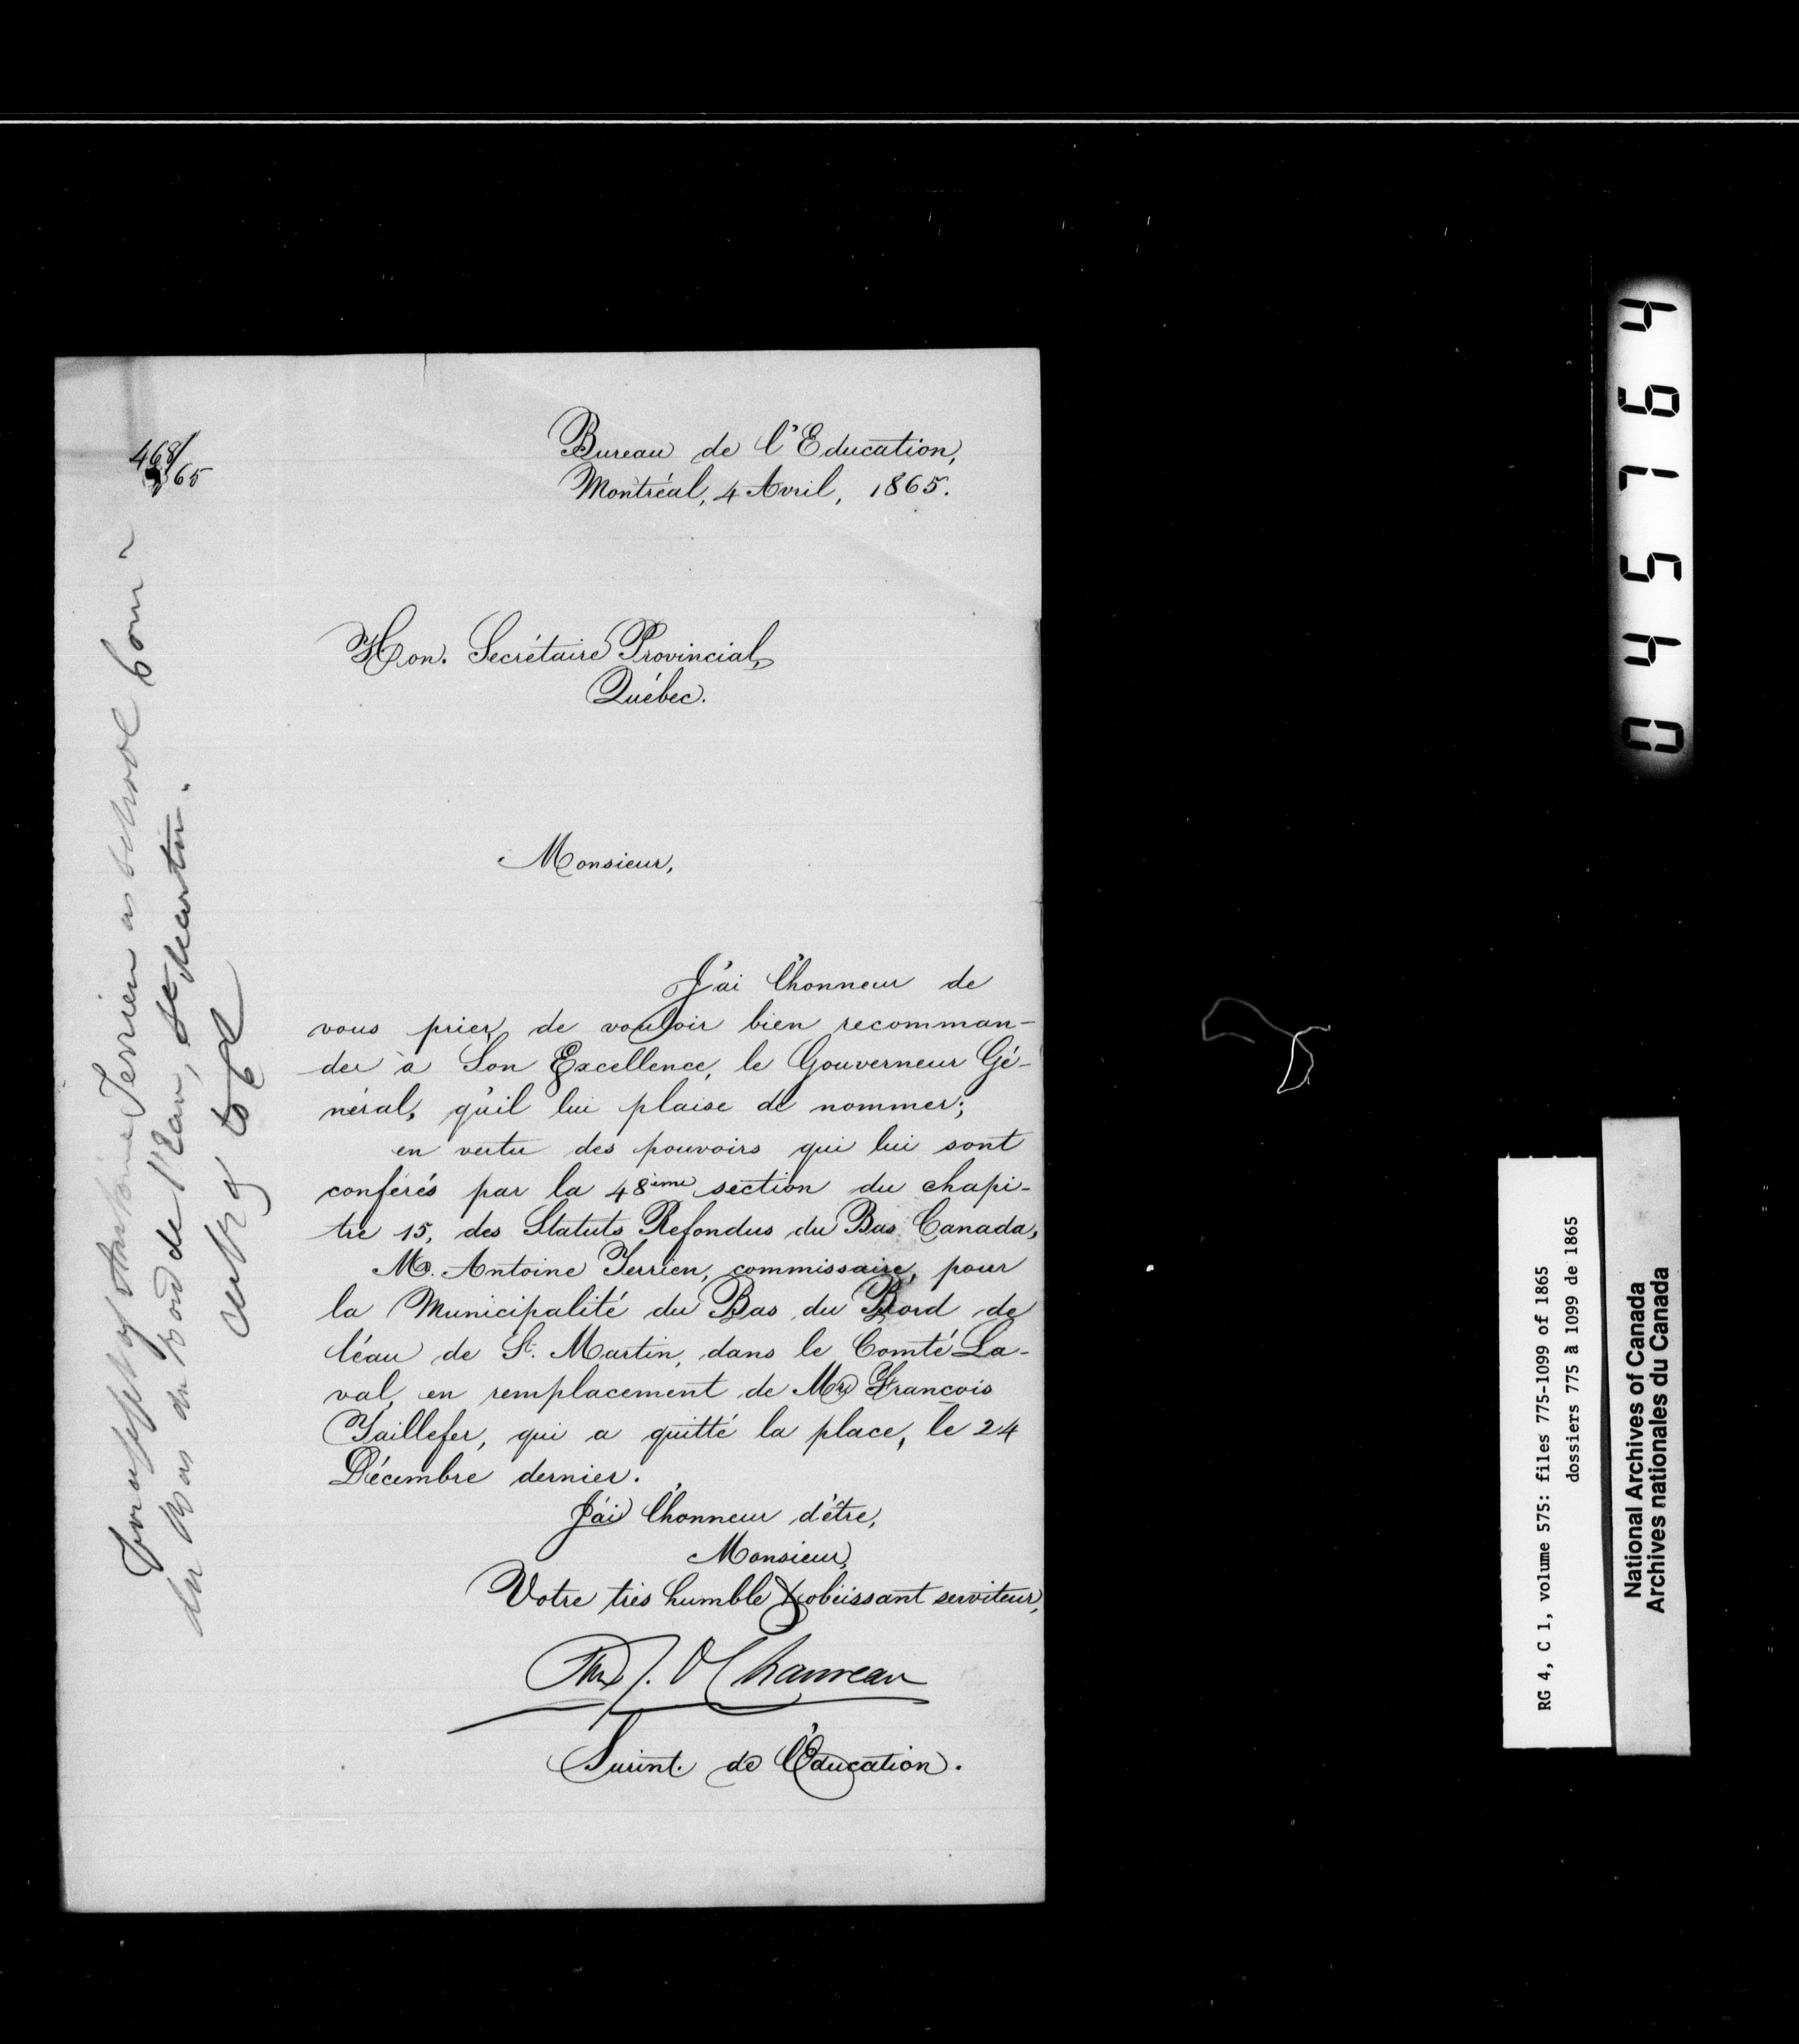 468/65
Bureau de l'Education,
Montréal, 4 Avril, 1865.
Hon. Secrétaire Provincial,
Québec.
Monsieur,
J'ai l'honneur de
vous prier, de vouloir bien recomman-
der à Son Excellence, le Gouverneur Gé-
néral, qu'il lui plaise de nommer;
en vertu des pouvoirs qui lui sont
conférés par la 48ème section du chapi-
tre 15, des Statuts Refondus du Bas Canada,
Mr. Antoine Terrien, commissaire, pour
la Municipalité du Bas du Bord de
l'éau de St. Martin, dans le Comté La-
val, en remplacement de Mr. Francois
Taillefer, qui a quitté la place, le 24
Décembre dernier.
J'ai l'honneur d'être,
Monsieur,
Votre très humble & obéissant serviteur,
P. J. O. Chauveau
Surint. de l'Education.
of Antoine Terrien as School Com
du Bas du Bord de l'Eau, St Martin.
RG 4, C 1, volume 575: files 775-1099 of 1865
dossiers 775 à 1099 de 1865
National Archives of Canada
Archives nationales du Canada
0 4 5 1 6 4